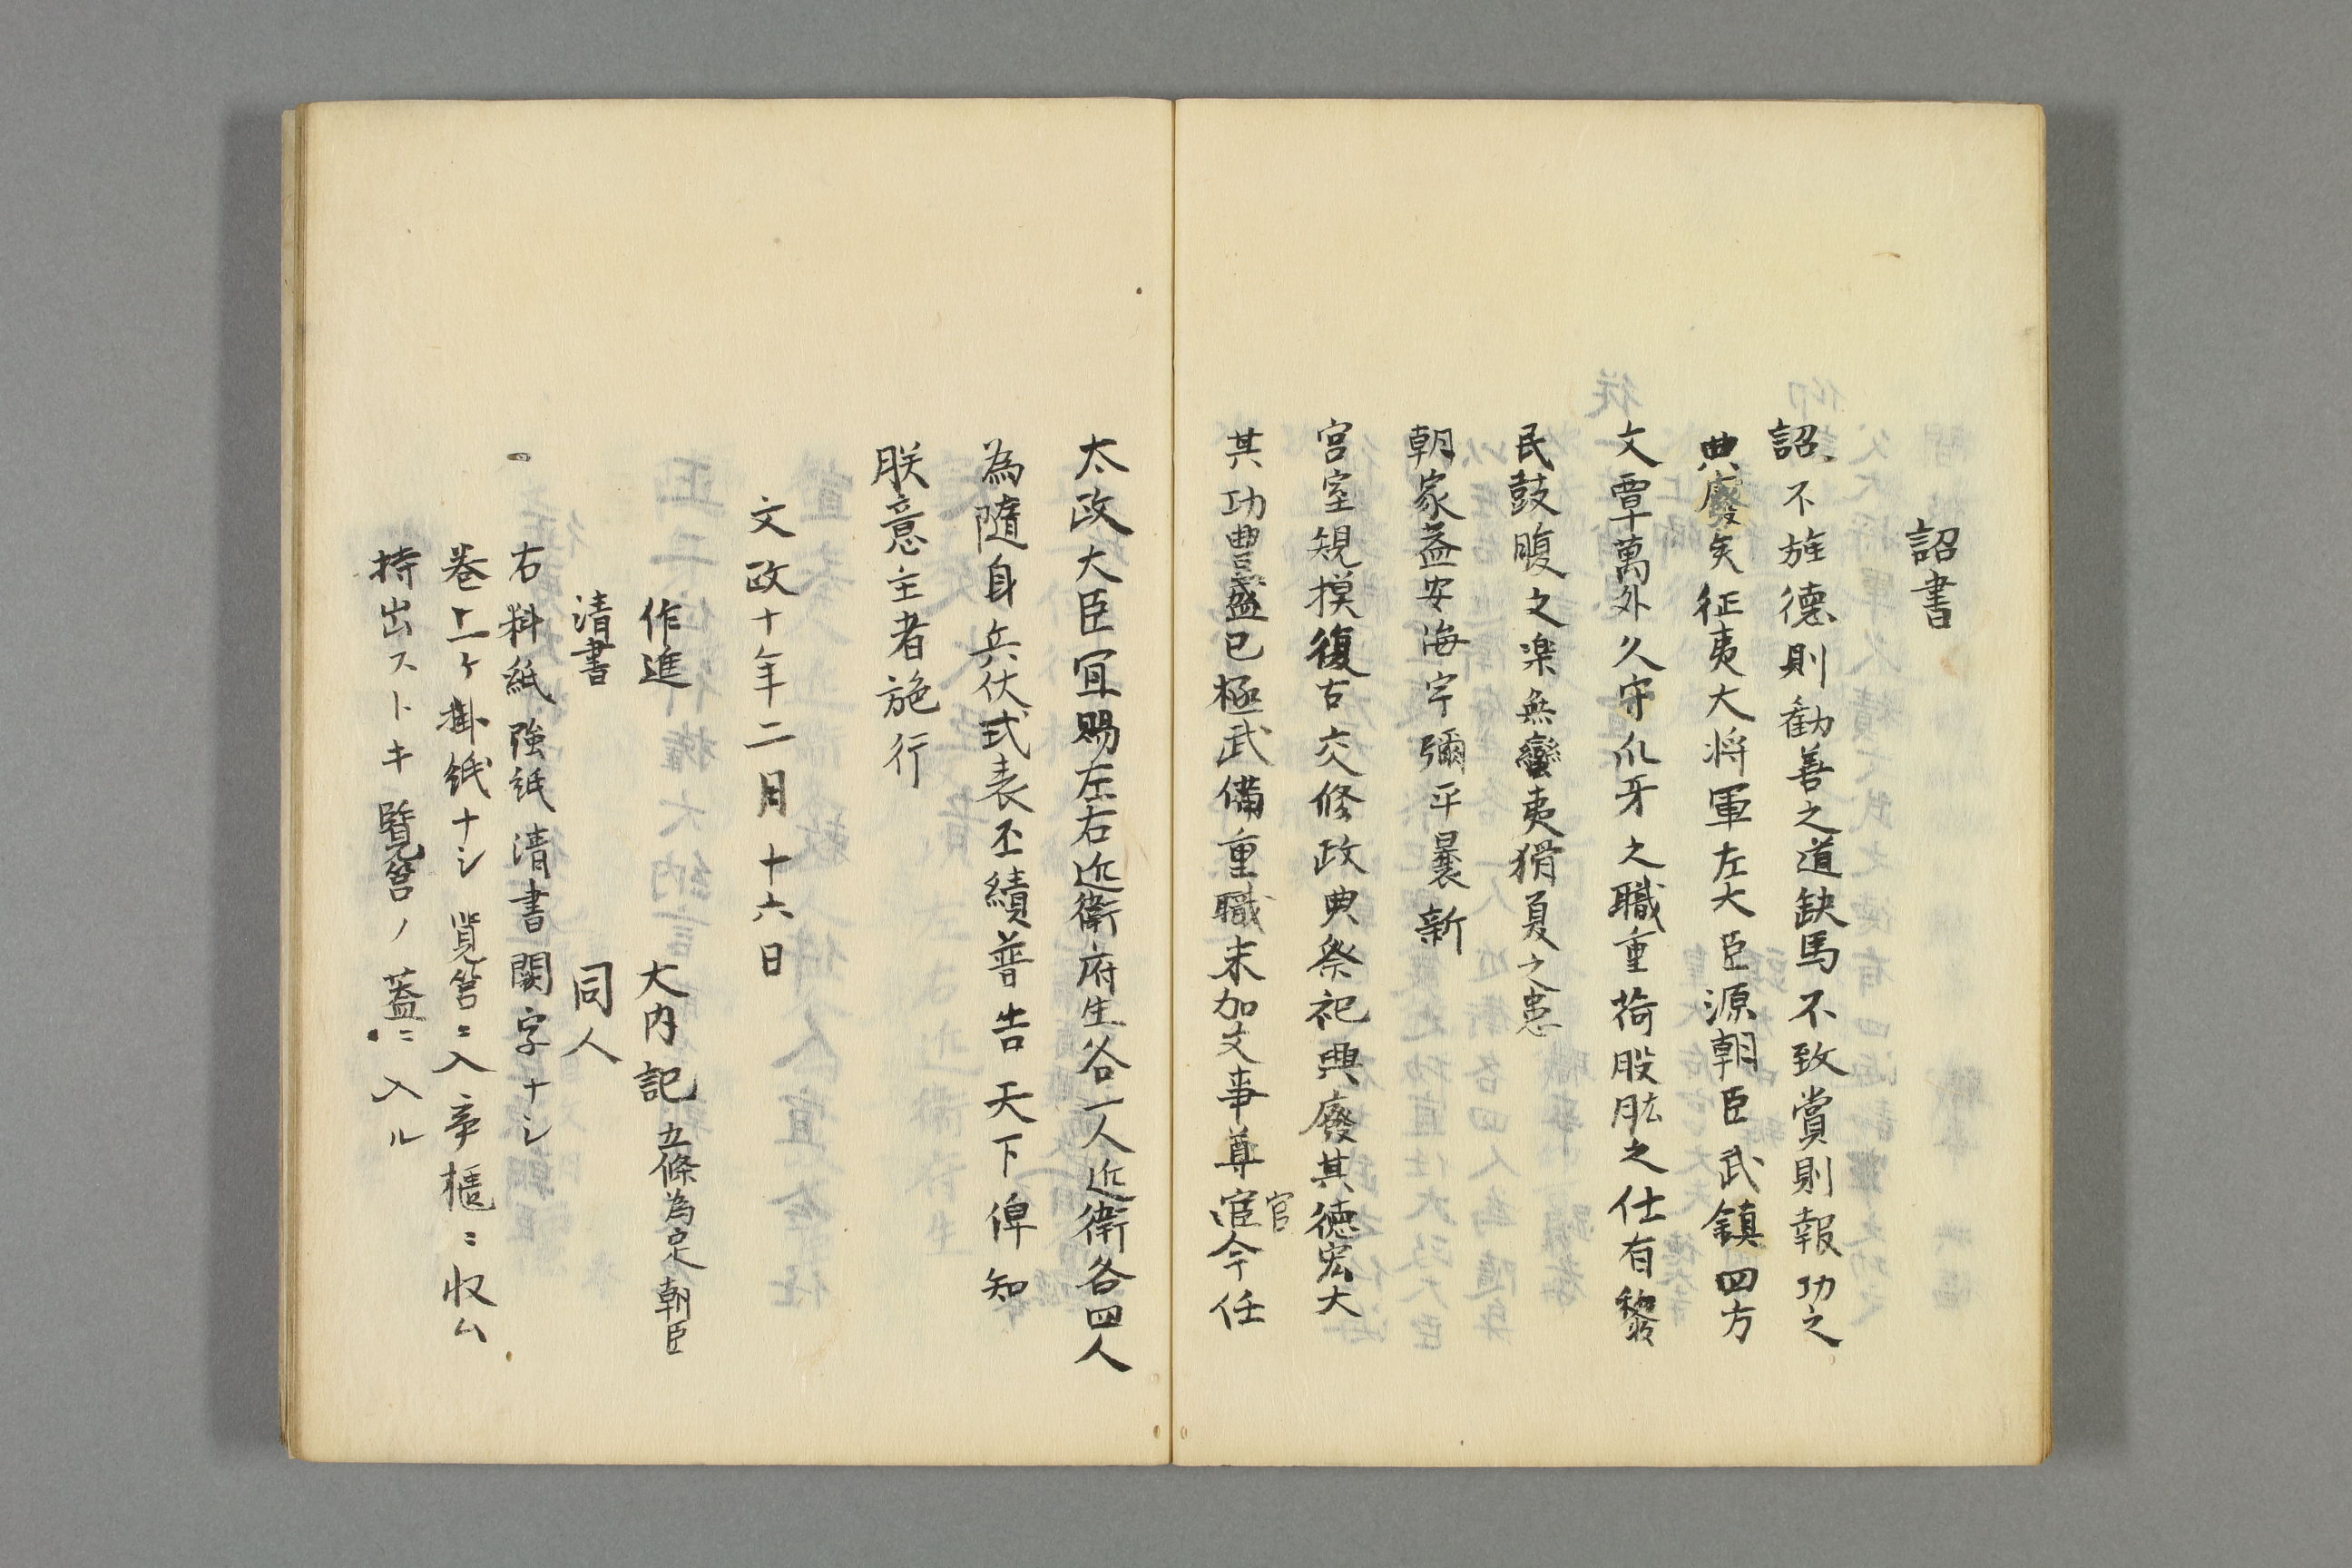 詔書
詔不旌德則勸善之道缺馬不致賞則報功之
典廢矣征夷大将軍左大臣源朝臣武鎮四方
文覃萬外久守爪牙之職重荷股肱之仕有黎
民鼓腹之楽無蠻夷猾夏之患
朝家益安海宇彌平曩新
宮室規模復古交修政典祭祀興廢其徳宏大
其功豊盛已極武備重職未加文事尊宦今任
官
太政大臣宜賜左右近衛府生各一人近衛各四人
為隨身兵仗式表丕績普告天下俾知
朕意主者施行
文政十年二月十六日
作進 大内記 五條為定朝臣
清書 同人
一 右料紙強紙清書闕字ナシ
巻上ケ掛紙ナシ覧筥ニ入辛櫃ニ収ム
持出ストキ覧筥ノ蓋ニ入ル